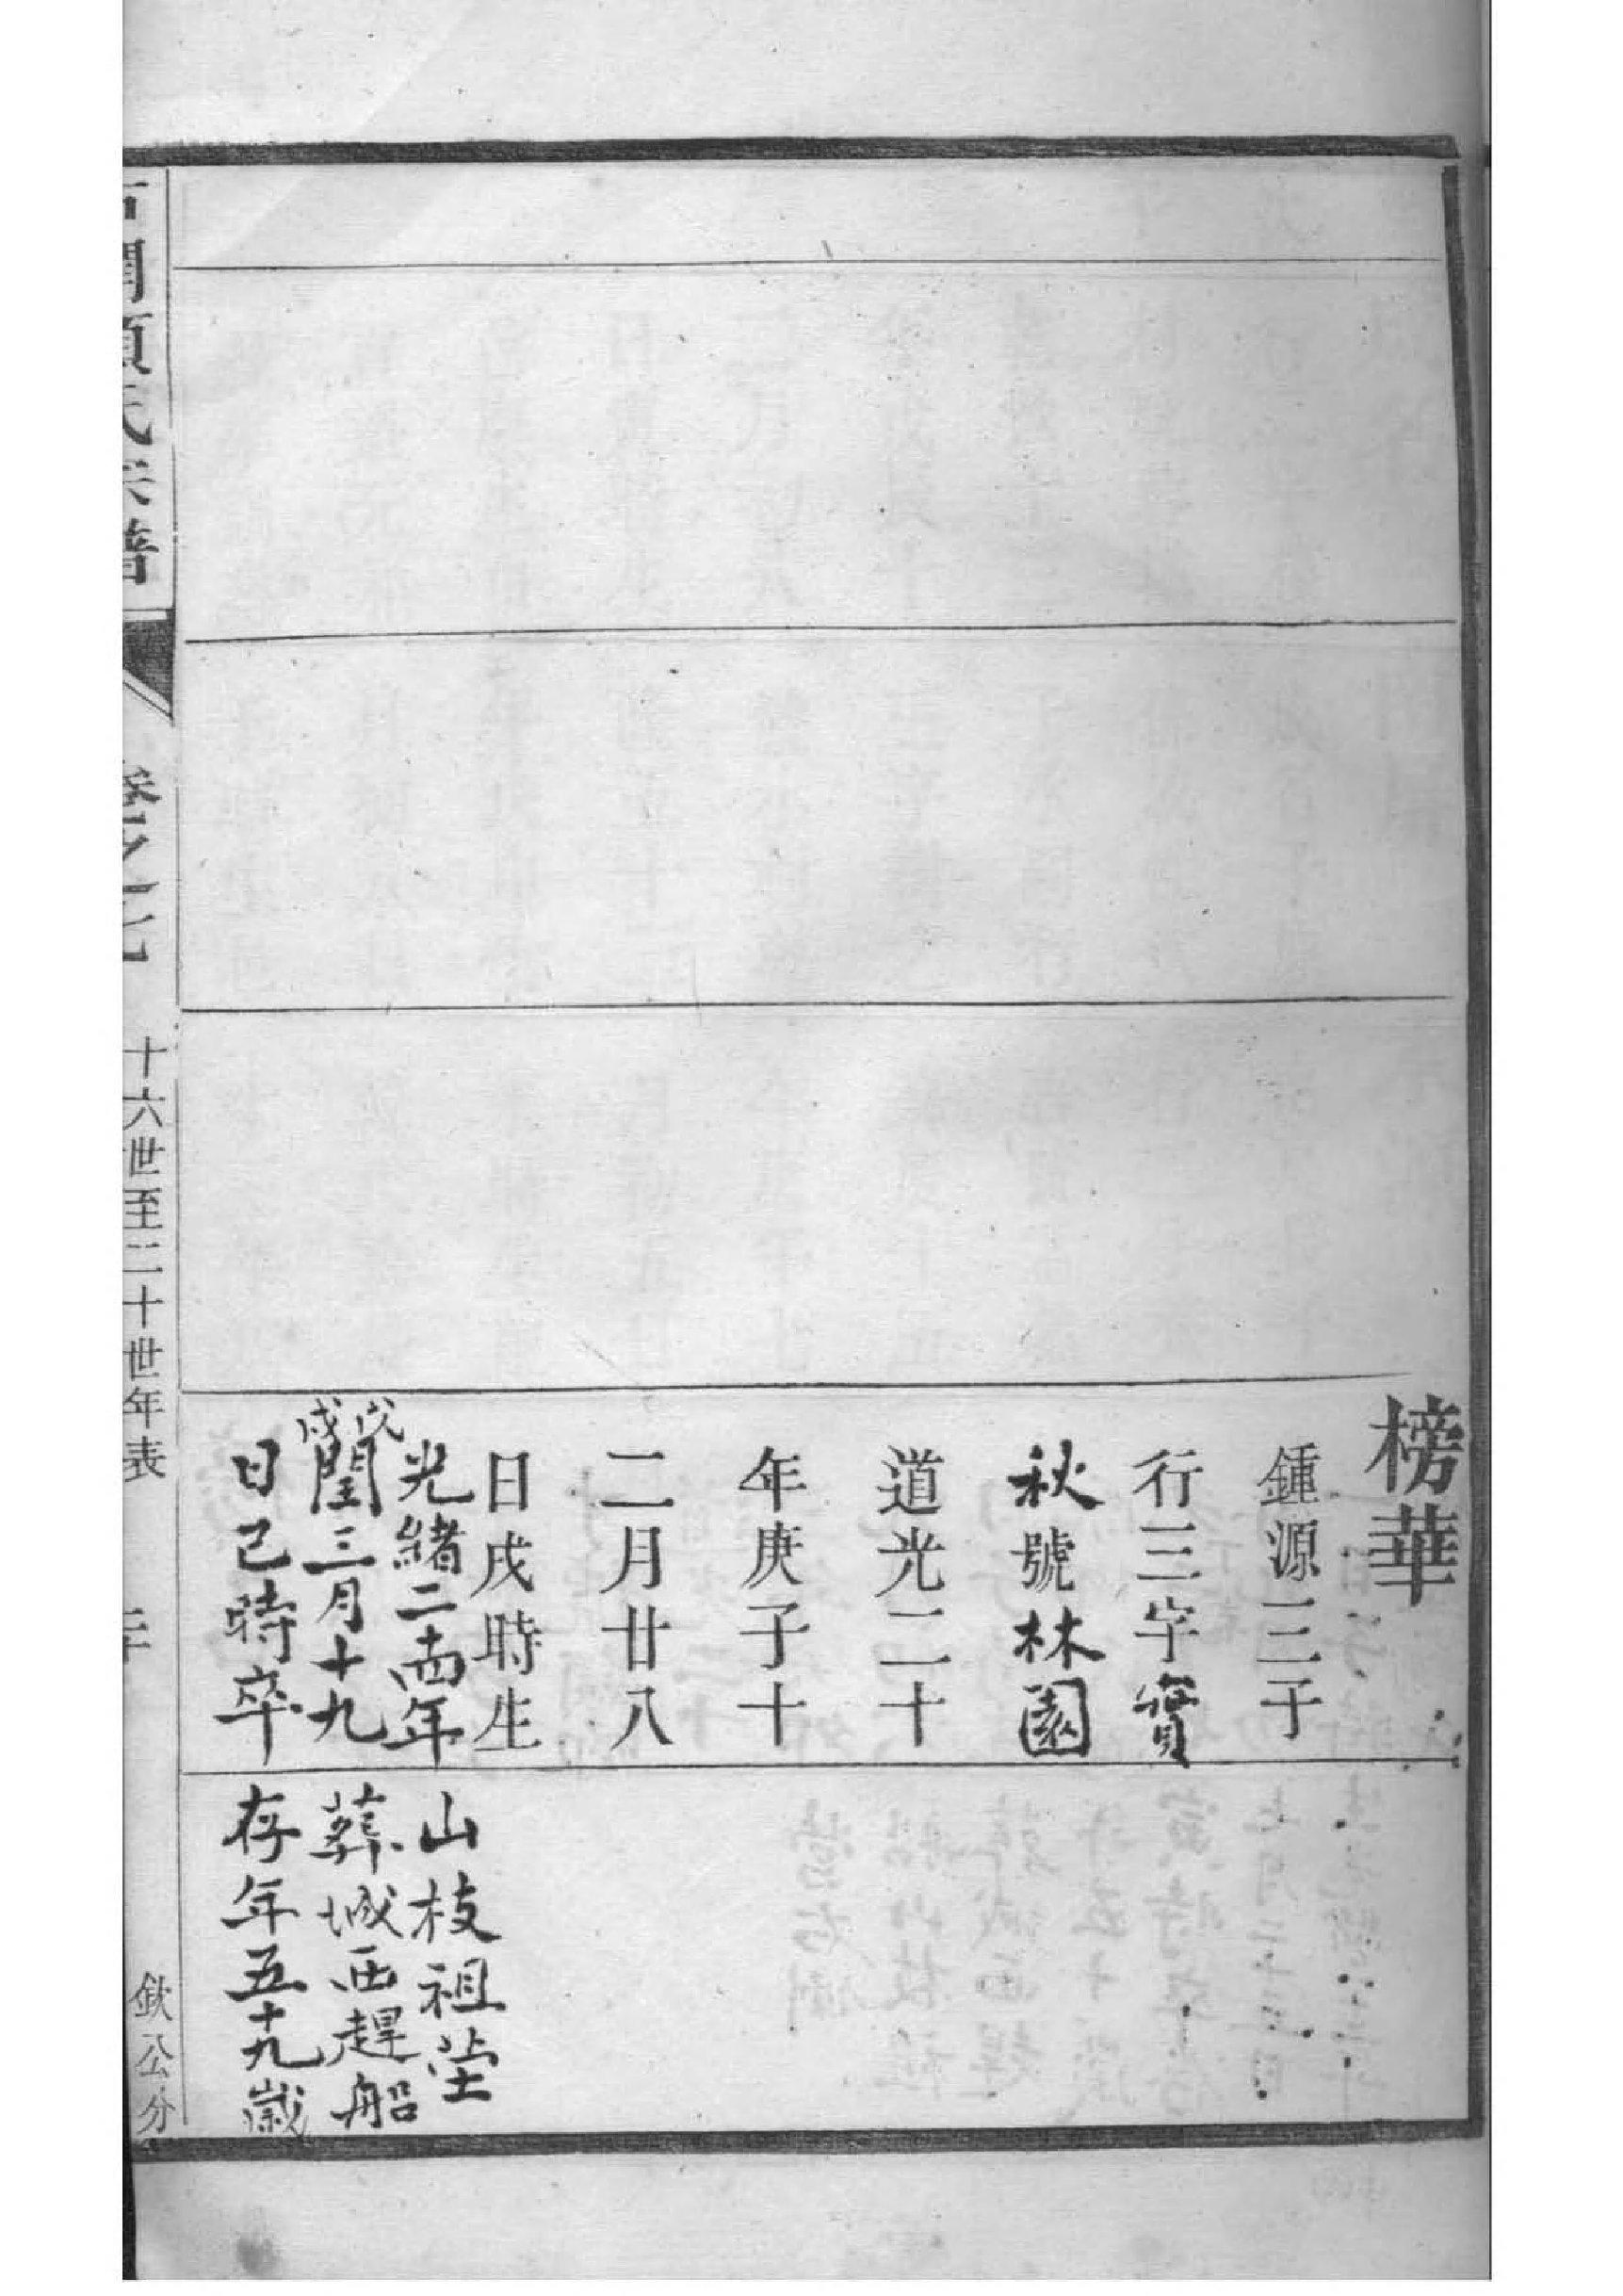 榜華
鍾源三子
行三字寶
秋號林園
道光二十
年庚子十
二月廿八
日戌時生
光緒二十四年
戊戌
閏三月十九
日巳時卒
存年五十九歲
葬城西趕船
山枝祖塋
項氏宗譜
卷之七
十六世至二十世年表
欽公分